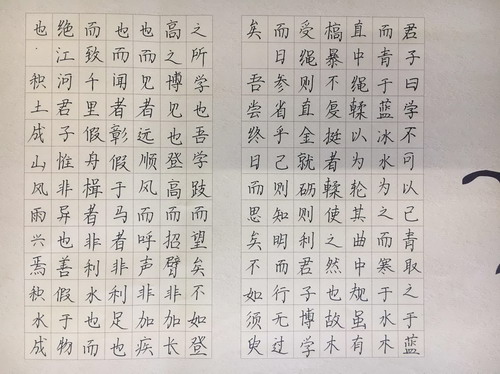 君子曰学不可以已青取之于蓝
而青于蓝冰水为之而寒于水木
直中绳輮以为轮其曲中规虽有
槁暴不复挺者輮使之然也故木
受绳则直金就砺则利君子博学
而日参省乎己则知明而行无过
矣 吾尝终日而思矣不如须臾
之所学也吾学跂而望矣不如登
高之博见也登高而招臂非加长
也而见者远顺风而呼声非加疾
也而闻者彰假于马者非利足也
而致千里假舟楫者非利水也而
绝江河君子惟非异也善假于物
也 积土成山风雨兴焉积水成